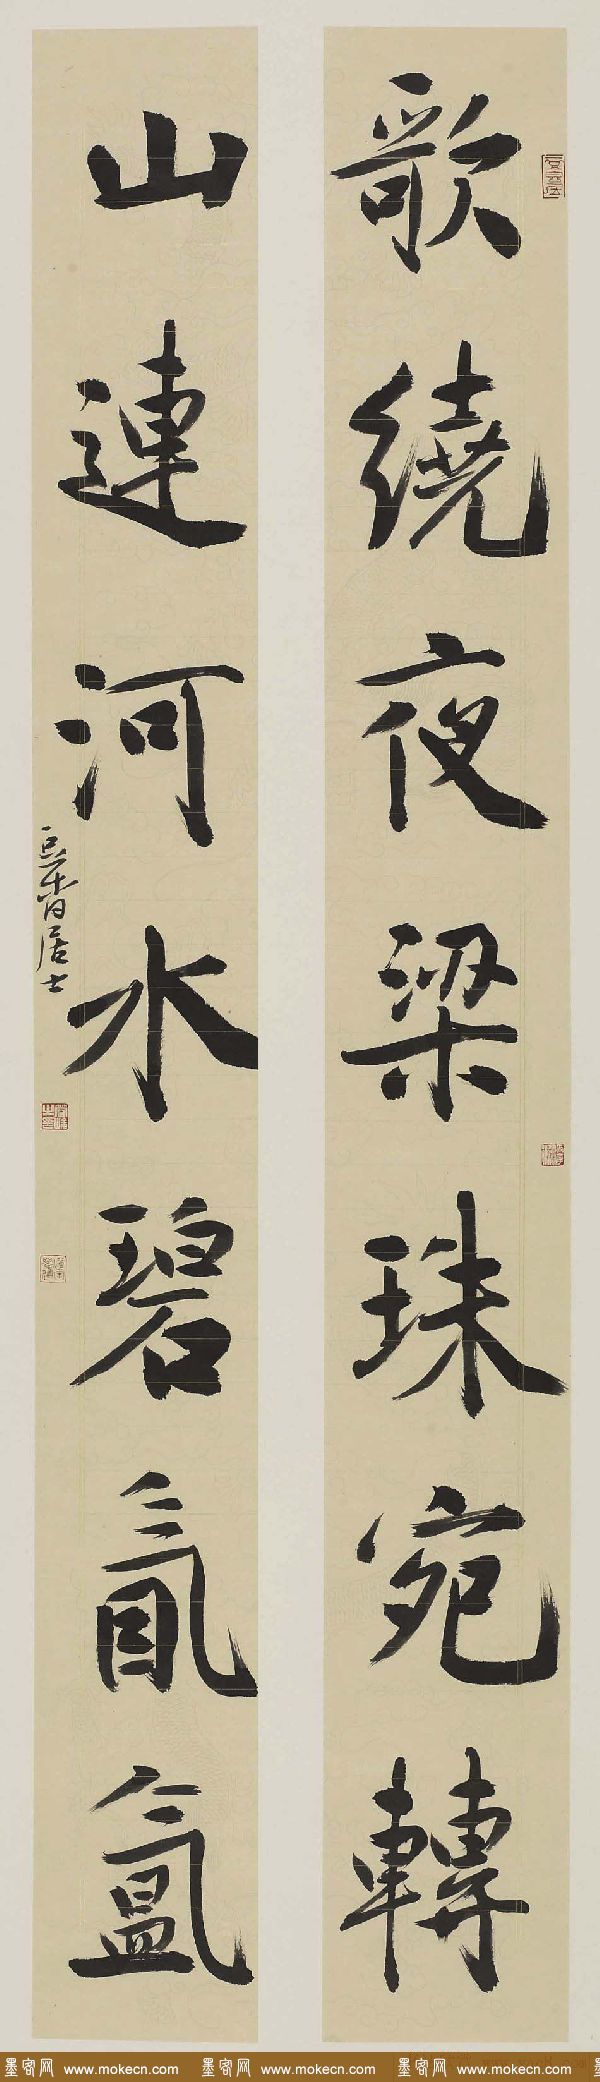 歌繞夜梁珠宛轉
山連河水碧氤氳
居士
墨客网 www.mokecn.com 墨客网 www.mokecn.com 墨客网 www.mokecn.com